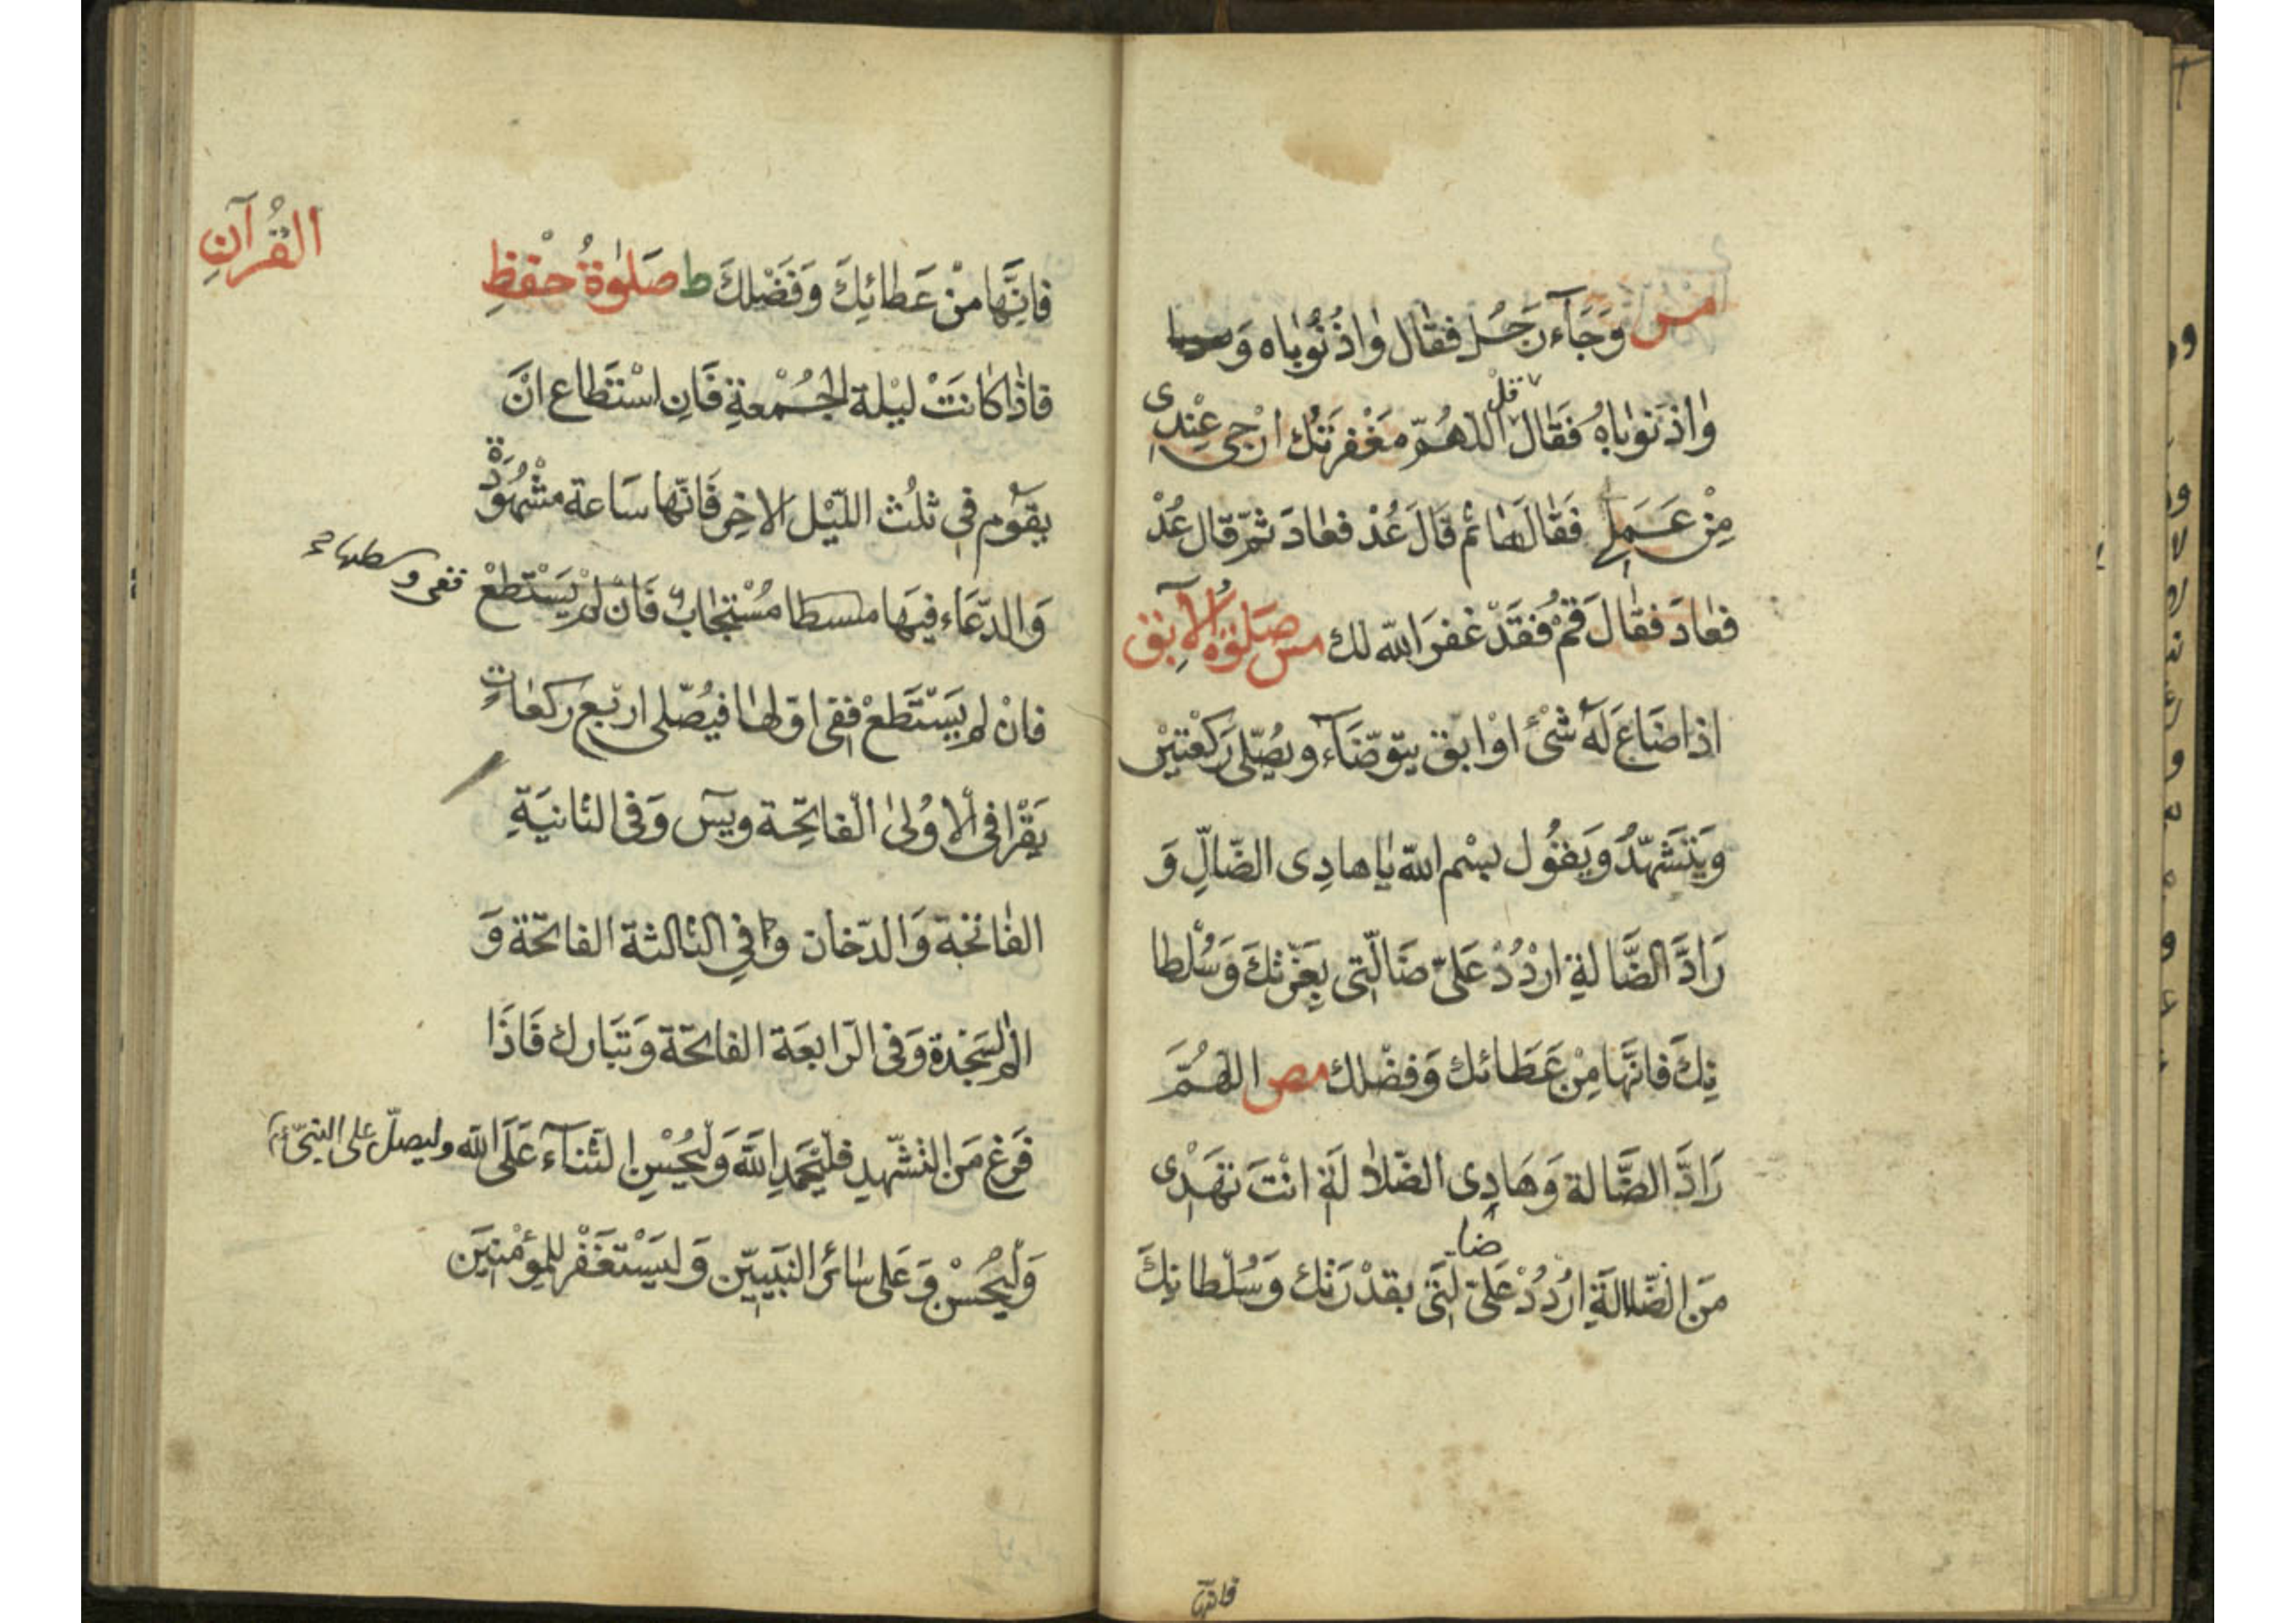 مس وَجَآءَ رَجُل فقال وٰاذُنُوبٰاه وَ
وٰاذنوباهُ فَقالَ قل اللهُمّ مغْفرَتك ارْجى عِنْدِى
مِنْ عَمَلى فَقالَها ثم قَالَ عُدْ فعادَ ثمّ قال عُدْ
فعادَ فقالَ قمْ فَقَدْ غفرَ الله لك مس صَلوٰةُ الآبِق
اذا ضَاعَ لَهُ شَىْءٌ اوْ ابق يتوضّآء ويُصلّى رَكعْتيْن
ويَتشَهّدُ ويَقُول بسْم الله يٰا هادِى الضّالِّ وَ
رَادَّ الضَّالةِ ارْدُدْ عَلىّ ضَالّتِى بِعِزّتِكَ وَسُلْطا
نِكَ فَانَّها مِنْ عَطائك وَفضْلك مص اللهُمَّ
رَادَّ الضَّالة وَهَادِى الضّلالَةِ انْتَ تهَدْى
مَن الضّلالَةِ ارْدُدْ عَلىّ ضالَّتِى بقدْرَتك وَسُلْطانِكَ
فانّها
فانَّها منْ عَطائِكَ وَفَضْلكَ ط صَلوٰةُ حفْظِ القُرآنِ
فاذٰا كانَتْ ليْلة الجُمْعةِ فَانِ اسْتَطاع انْ
يقوم فى ثلُث اللّيْل الاخِر فَانّها سَاعة مشْهُودَةٌ
وَالدّعَاء فيهَا مُسْتجٰابٌ فَانْ لمْ يَسْتطعْ ففى وسطها
فانْ لم يَسْتَطعْ ففى اوّلها فيُصّلى ارْبع ركعاتٍ
يَقْرا فى الاوُلىٰ الفاتِحة ويسٓ وَفى الثانيَةِ
الفٰاتحة وَالدّخان وَفى الثالثة الفاتحَة وَ
الم السَجْدة وَفى الرّابعَة الفاتحَة وَتبَارك فَاذَا
فَرغ مَن التشّهدِ فلْيَحْمَدِ اللَّه وَلْيُحْسِنِ الثنآء عَلَى الله وليصلّ على النبىّ
وَلْيُحْسنْ وَعَلى سٰائر النَبيّين وَليَسْتغَفْر للمؤمْنِيَن